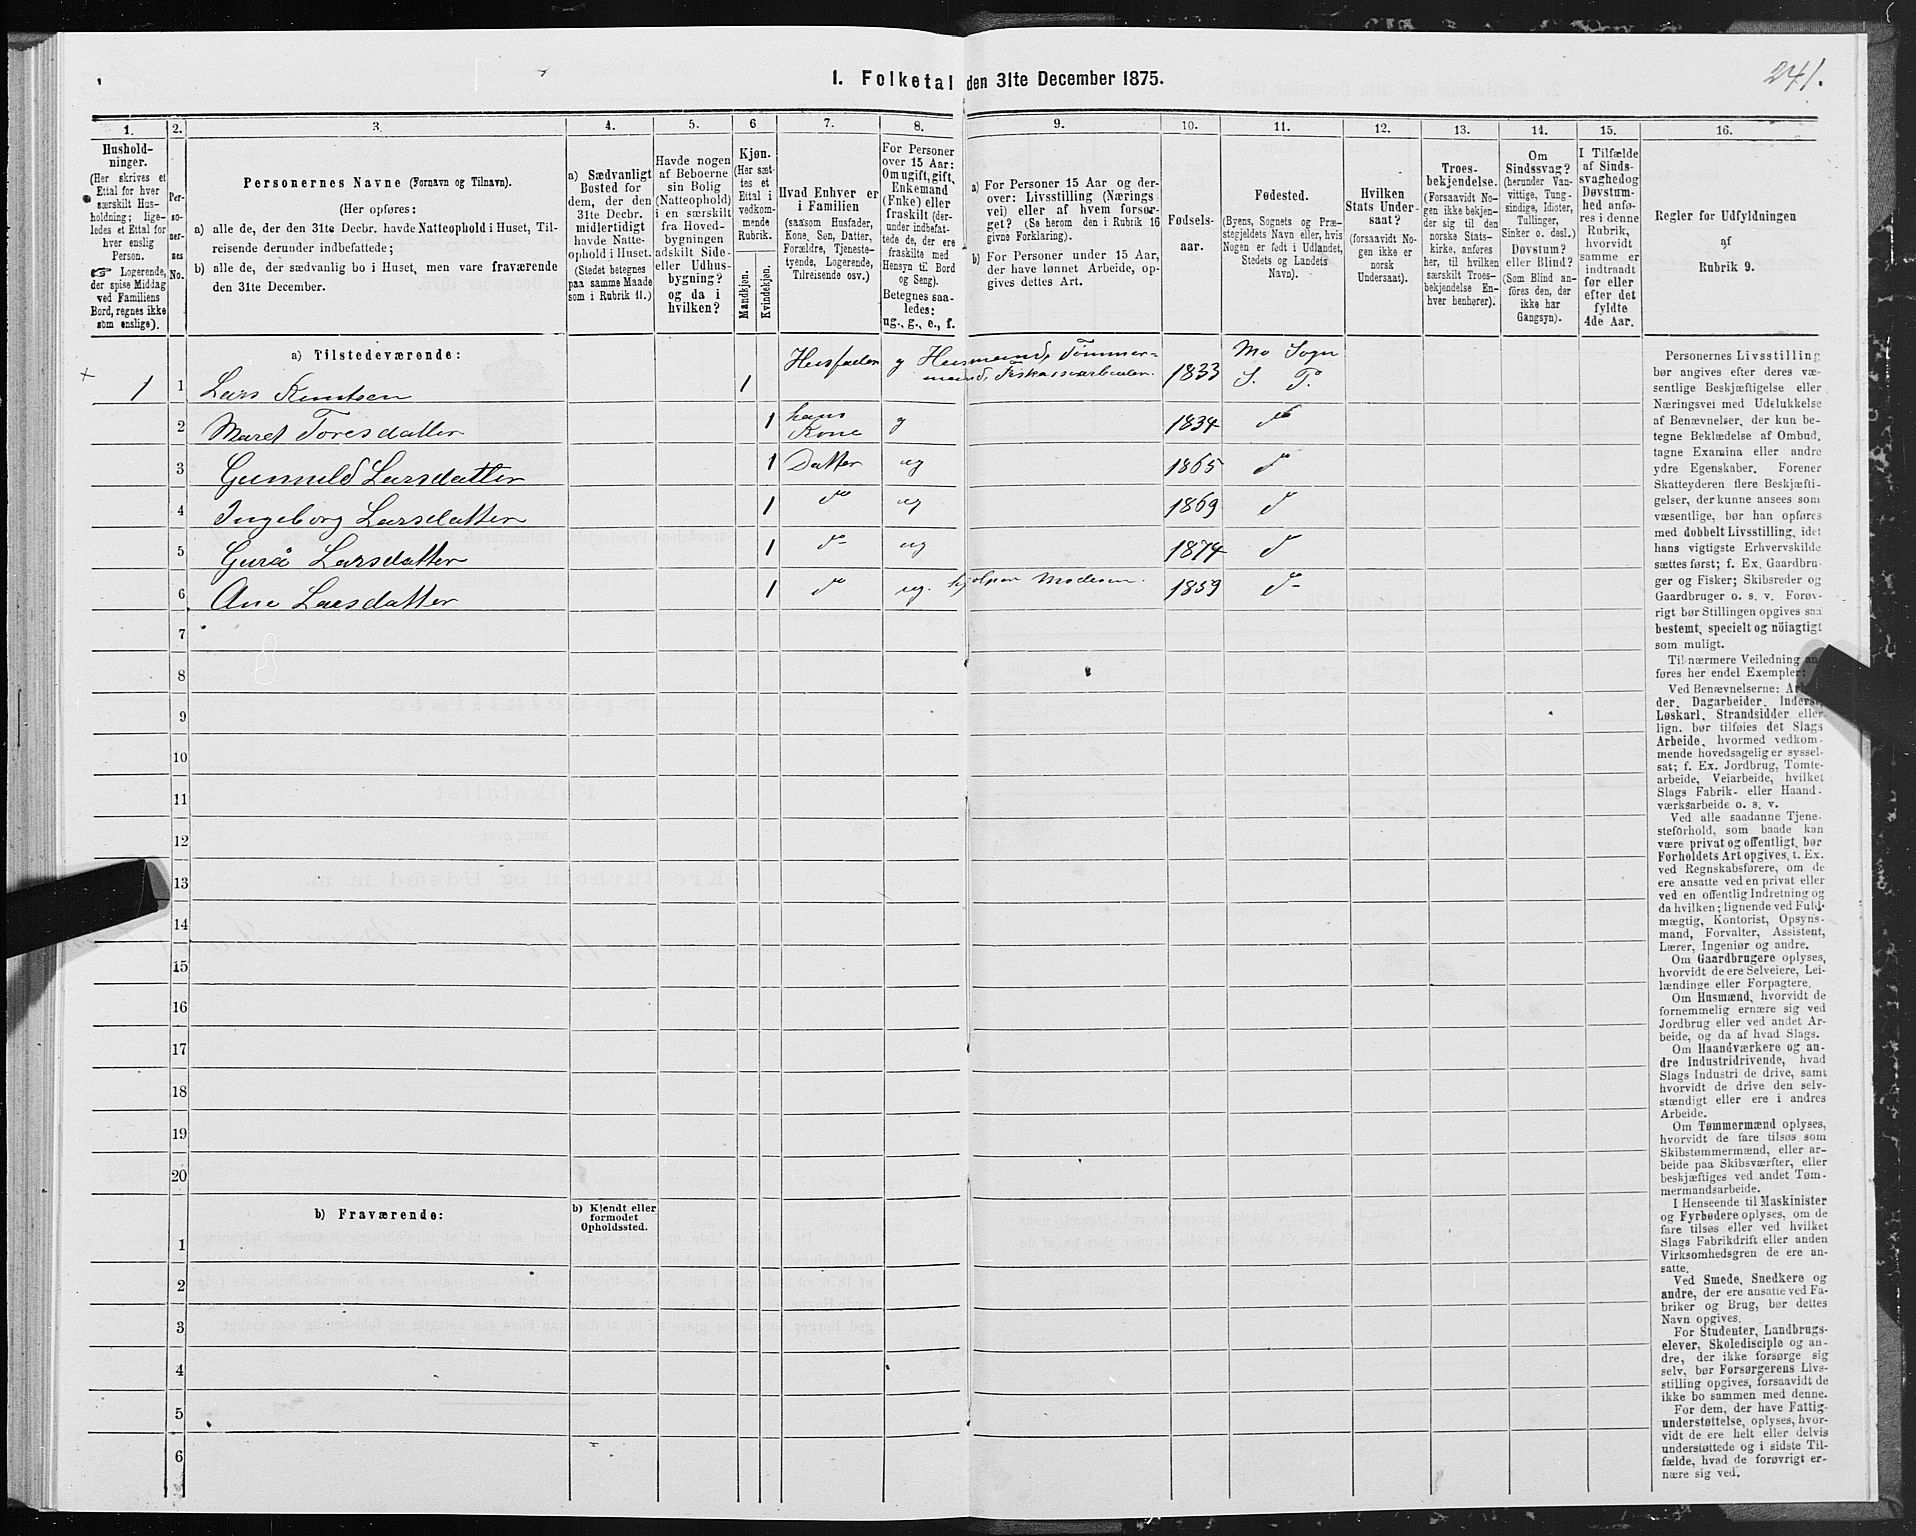 I. Folketal den 31te December 1875.
241.
1. 2. 3. 4. 5. 6 7. 8. 9. 10. 11. 12. 13. 14. 15. 16.
Hushold-
ninger.
(Her skrives et
Ettal for hver
særskilt Hus-
holdning; lige-
ledes et Ettal for
hver enslig
Person.
☞ Logerende,
der spise Middag
ved Familiens
Bord, regnes ikke
som enslige).
Per-
so-
ner-
nes
No.
Personernes Navne (Fornavn og Tilnavn).
(Her opføres:
a) alle de, der den 31te Decbr. havde Natteophold i Huset, Til-
reisende derunder indbefattede;
b) alle de, der sædvanlig bo i Huset, men vare fraværende
den 31te December.
a) Sædvanligt
Bosted for
dem, der den
31te Decbr.
midlertidigt
havde Natte-
ophold i Huset.
(Stedet betegnes
paa samme Maade
som i Rubrik 11.)
Havde nogen
af Beboerne
sin Bolig
(Natteophold)
i en særskilt
fra Hoved-
bygningen
adskilt Side-
eller Udhus-
bygning?
og da i
hvilken?
Kjøn.
(Her sæt-
tes et
Ettal i
vedkom-
mende
Rubrik.
Mandkjøn.
Kvindekjøn.
Hvad Enhver er
i Familien
(saasom Husfader,
Kone, Søn, Datter,
Forældre, Tjeneste-
tyende, Logerende,
Tilreisende osv.)
For Personer
over 15 Aar:
Om ugift, gift,
Enkemand
(Enke) eller
fraskilt (der-
under indbefat-
tede de, der ere
fraskilte med
Hensyn til Bord
og Seng).
Betegnes saa-
ledes:
ug., g., e., f.
a) For Personer 15 Aar og der-
over: Livsstilling (Nærings
vei) eller af hvem forsør-
get? (Se herom den i Rubrik 16
givne Forklaring).
b) For Personer under 15 Aar,
der have lønnet Arbeide, op-
gives dettes Art.
Fødsels-
aar.
Fødested.
(Byens, Sognets og Præ-
stegjeldets Navn eller, hvis
Nogen er født i Udlandet,
Stedets og Landets
Navn).
Hvilken
Stats Under-
saat?
(forsaavidt No-
gen ikke er
norsk
Undersaat).
Troes-
bekjendelse.
(Forsaavidt No-
gen ikke bekjen-
der sig til den
norske Stats-
kirke, anføres
her, til hvilken
særskilt Troes-
bekjendelse En-
hver henhører).
Om
Sindssvag?
(herunder Van-
vittige, Tung-
sindige, Idioter,
Tullinger,
Sinker o. desl.)
Døvstum?
eller Blind?
(Som Blind an-
føres den, der
ikke har
Gangsyn).
I Tilfælde
af Sinds-
svaghed og
Døvstum-
hed anfø-
res i denne
Rubrik,
hvorvidt
samme er
indtraadt
før eller
efter det
fyldte
4de Aar.
Regler for Udfyldningen
af
Rubrik 9.
a) Tilstedeværende:
1 1 Lars Knutsen 1 Husfader g Husmand, Tømmer-
mand, Fiskas arbeider. 1833 Mo Sogn
S. P.
2 Maret Toresdatter 1 hans
Kone g 1834 do
3 Gunnild Larsdatter 1 Datter ug 1865 d
4 Ingeborg Larsdatter 1 do ug 1869 d
5 Guró Larsdatter 1 d- ug 1874 d
6 Ane Larsdatter 1 do ug. hjelper Moderen. 1859 do
7
8
9
10
11
12
13
14
15
16
17
18
19
20
b) Fraværende:
b) Kjendt eller
formodet
Opholdssted.
1
2
3
4
5
6
Personernes Livsstilling
bør angives efter deres væ-
sentlige Beskjæftigelse eller
Næringsvei med Udelukkelse
af Benævnelser, der kun be-
tegne Beklædelse af Ombud,
tagne Examina eller andre
ydre Egenskaber. Forener
Skatteyderen flere Beskjæfti-
gelser, der kunne ansees som
væsentlige, bør han opføres
med dobbelt Livsstilling, idet
hans vigtigste Erhvervskilde
sættes først; f. Ex. Gaardbru-
ger og Fisker; Skibsreder og
Gaardbruger o. s. v. Forøv-
rigt bør Stillingen opgives saa
bestemt, specielt og nöiagtigt
som muligt.
Til nærmere Veiledning an
føres her endel Exempler:
Ved Benævnelserne: Ar
der, Dagarbeider, Inderst,
Løskarl, Strandsidder eller
lign. bør tilføies det Slags
Arbeide, hvormed vedkom-
mende hovedsagelig er syssel-
sat; f. Ex. Jordbrug, Tomte-
arbeide, Veiarbeide, hvilket
Slags Fabrik- eller Haand-
værksarbeide o. s. v.
Ved alle saadanne Tjene-
steforhold, som baade kan
være privat og offentligt, bør
Forholdets Art opgives, t. Ex.
ved Regnskabsførere, om de
ere ansatte ved en privat eller
ved en offentlig Indretning og
da hvilken; lignende ved Fuld-
mægtig, Kontorist, Opsyns-
mand, Forvalter, Assistent,
Lærer, Ingeniør og andre.
Om Gaardbrugere oplyses,
hvorvidt de ere Selveiere, Lei-
lændinge eller Forpagtere.
Om Husmænd, hvorvidt de
fornemmelig ernære sig ved
Jordbrug eller ved andet Ar-
beide, og da af hvad Slags.
Om Haandværkere og an-
dre Industridrivende, hvad
Slags Industri de drive, samt
hvorvidt de drive den selv-
stændigt eller ere i andres
Arbeide.
Om Tømmermænd oplyses,
hvorvidt de fare tilsøs som
Skibstømmermænd, eller ar-
beide paa Skibsværfter, eller
beskjæftiges ved andet Tøm-
mermandsarbeide.
I Henseende til Maskinister
og Fyrbødere oplyses, om de
fare tilsøs eller ved hvilket
Slags Fabrikdrift eller anden
Virksomhedsgren de ere an-
satte.
Ved Smede, Snedkere og
andre, der ere ansatte ved Fa-
briker og Brug, bør dettes
Navn opgives.
For Studenter, Landbrugs-
elever, Skoledisciple og an-
dre, der ikke forsørge sig
selv, bør Forsørgerens Livs-
stilling opgives, forsaavidt de
ikke bo sammen med denne.
For dem, der have Fattig-
understøttelse, oplyses, hvor-
vidt de ere helt eller delvis
understøttede og i sidste Til-
fælde, hvad de forøvrigt er-
nære sig ved.